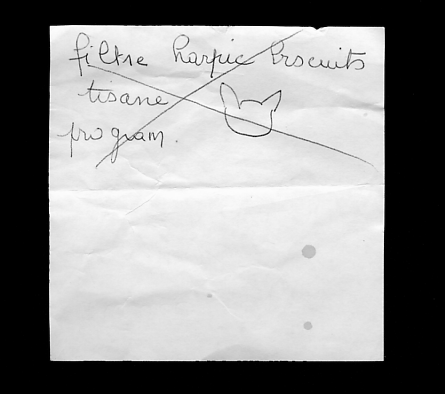 filtre harpic biscuits
tisane
program.